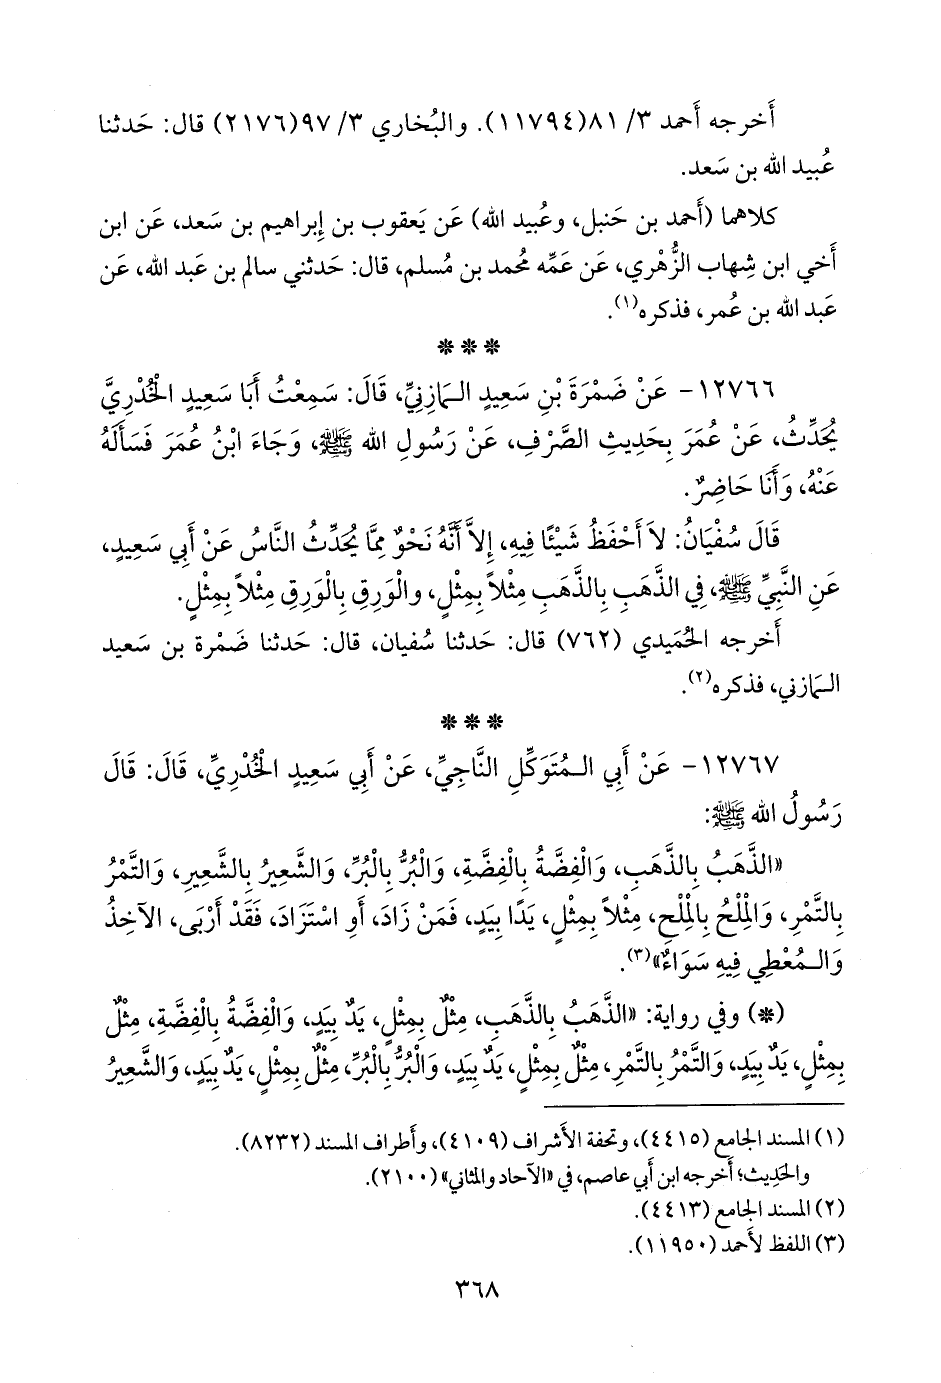 أَخرجه أَحمد ٣/ ٨١(١١٧٩٤). والبُخاري ٣/ ٩٧(٢١٧٦) قال: حَدثنا
عُبيد الله بن سَعد.
كلاهما (أَحمد بن حَنبل، وعُبيد الله) عَن يَعقوب بن إِبراهيم بن سَعد، عَن ابن
أَخي ابن شِهاب الزُّهْري، عَن عَمِّه مُحمد بن مُسلم، قال: حَدثني سالم بن عَبد الله، عَن
عَبد الله بن عُمر، فذكره(١).
* * *
١٢٧٦٦- عَنْ ضَمْرَةَ بْنِ سَعِيدٍ الـمَازِنِيِّ، قَالَ: سَمِعْتُ أَبَا سَعِيدٍ الْخُدْرِيَّ
يُحَدِّثُ، عَنْ عُمَرَ بِحَدِيثِ الصَّرْفِ، عَنْ رَسُولِ الله ﷺ، وَجَاءَ ابْنُ عُمَرَ فَسَأَلَهُ
عَنْهُ، وَأَنَا حَاضِرٌ.
قَالَ سُفْيَانُ: لاَ أَحْفَظُ شَيْئًا فِيهِ، إِلاَّ أَنَّهُ نَحْوٌ مِمَّا يُحَدِّثُ النَّاسُ عَنْ أَبِي سَعِيدٍ،
عَنِ النَّبِيِّ ﷺ، فِي الذَّهَبِ بِالذَّهَبِ مِثْلاً بِمِثْلٍ، والْوَرِقِ بِالْوَرِقِ مِثْلاً بِمِثْلٍ.
أَخرجه الحُمَيدي (٧٦٢) قال: حَدثنا سُفيان، قال: حَدثنا ضَمْرة بن سَعيد
الـمَازني، فذكره(٢).
* * *
١٢٧٦٧- عَنْ أَبِي الـمُتَوَكِّلِ النَّاجِيِّ، عَنْ أَبِي سَعِيدٍ الْخُدْرِيِّ، قَالَ: قَالَ
رَسُولُ الله ﷺ:
«الذَّهَبُ بِالذَّهَبِ، وَالْفِضَّةُ بِالْفِضَّةِ، وَالْبُرُّ بِالْبُرِّ، وَالشَّعِيرُ بِالشَّعِيرِ، وَالتَّمْرُ
بِالتَّمْرِ، وَالْمِلْحُ بِالْمِلْحِ، مِثْلاً بِمِثْلٍ، يَدًا بِيَدٍ، فَمَنْ زَادَ، أَوِ اسْتَزَادَ، فَقَدْ أَرْبَى، الآخِذُ
وَالـمُعْطِي فِيهِ سَوَاءٌ»(٣).
(*) وفي رواية: «الذَّهَبُ بِالذَّهَبِ، مِثْلٌ بِمِثْلٍ، يَدٌ بِيَدٍ، وَالْفِضَّةُ بِالْفِضَّةِ، مِثْلٌ
بِمِثْلٍ، يَدٌ بِيَدٍ، وَالتَّمْرُ بِالتَّمْرِ، مِثْلٌ بِمِثْلٍ، يَدٌ بِيَدٍ، وَالْبُرُّ بِالْبُرِّ، مِثْلٌ بِمِثْلٍ، يَدٌ بِيَدٍ، وَالشَّعِيرُ
(١) المسند الجامع (٤٤١٥)، وتحفة الأَشراف (٤١٠٩)، وأَطراف المسند (٨٢٣٢).
والحَدِيث؛ أَخرجه ابن أَبي عاصم، في «الآحاد والمثاني» (٢١٠٠).
(٢) المسند الجامع (٤٤١٣).
(٣) اللفظ لأَحمد (١١٩٥٠).
٣٦٨